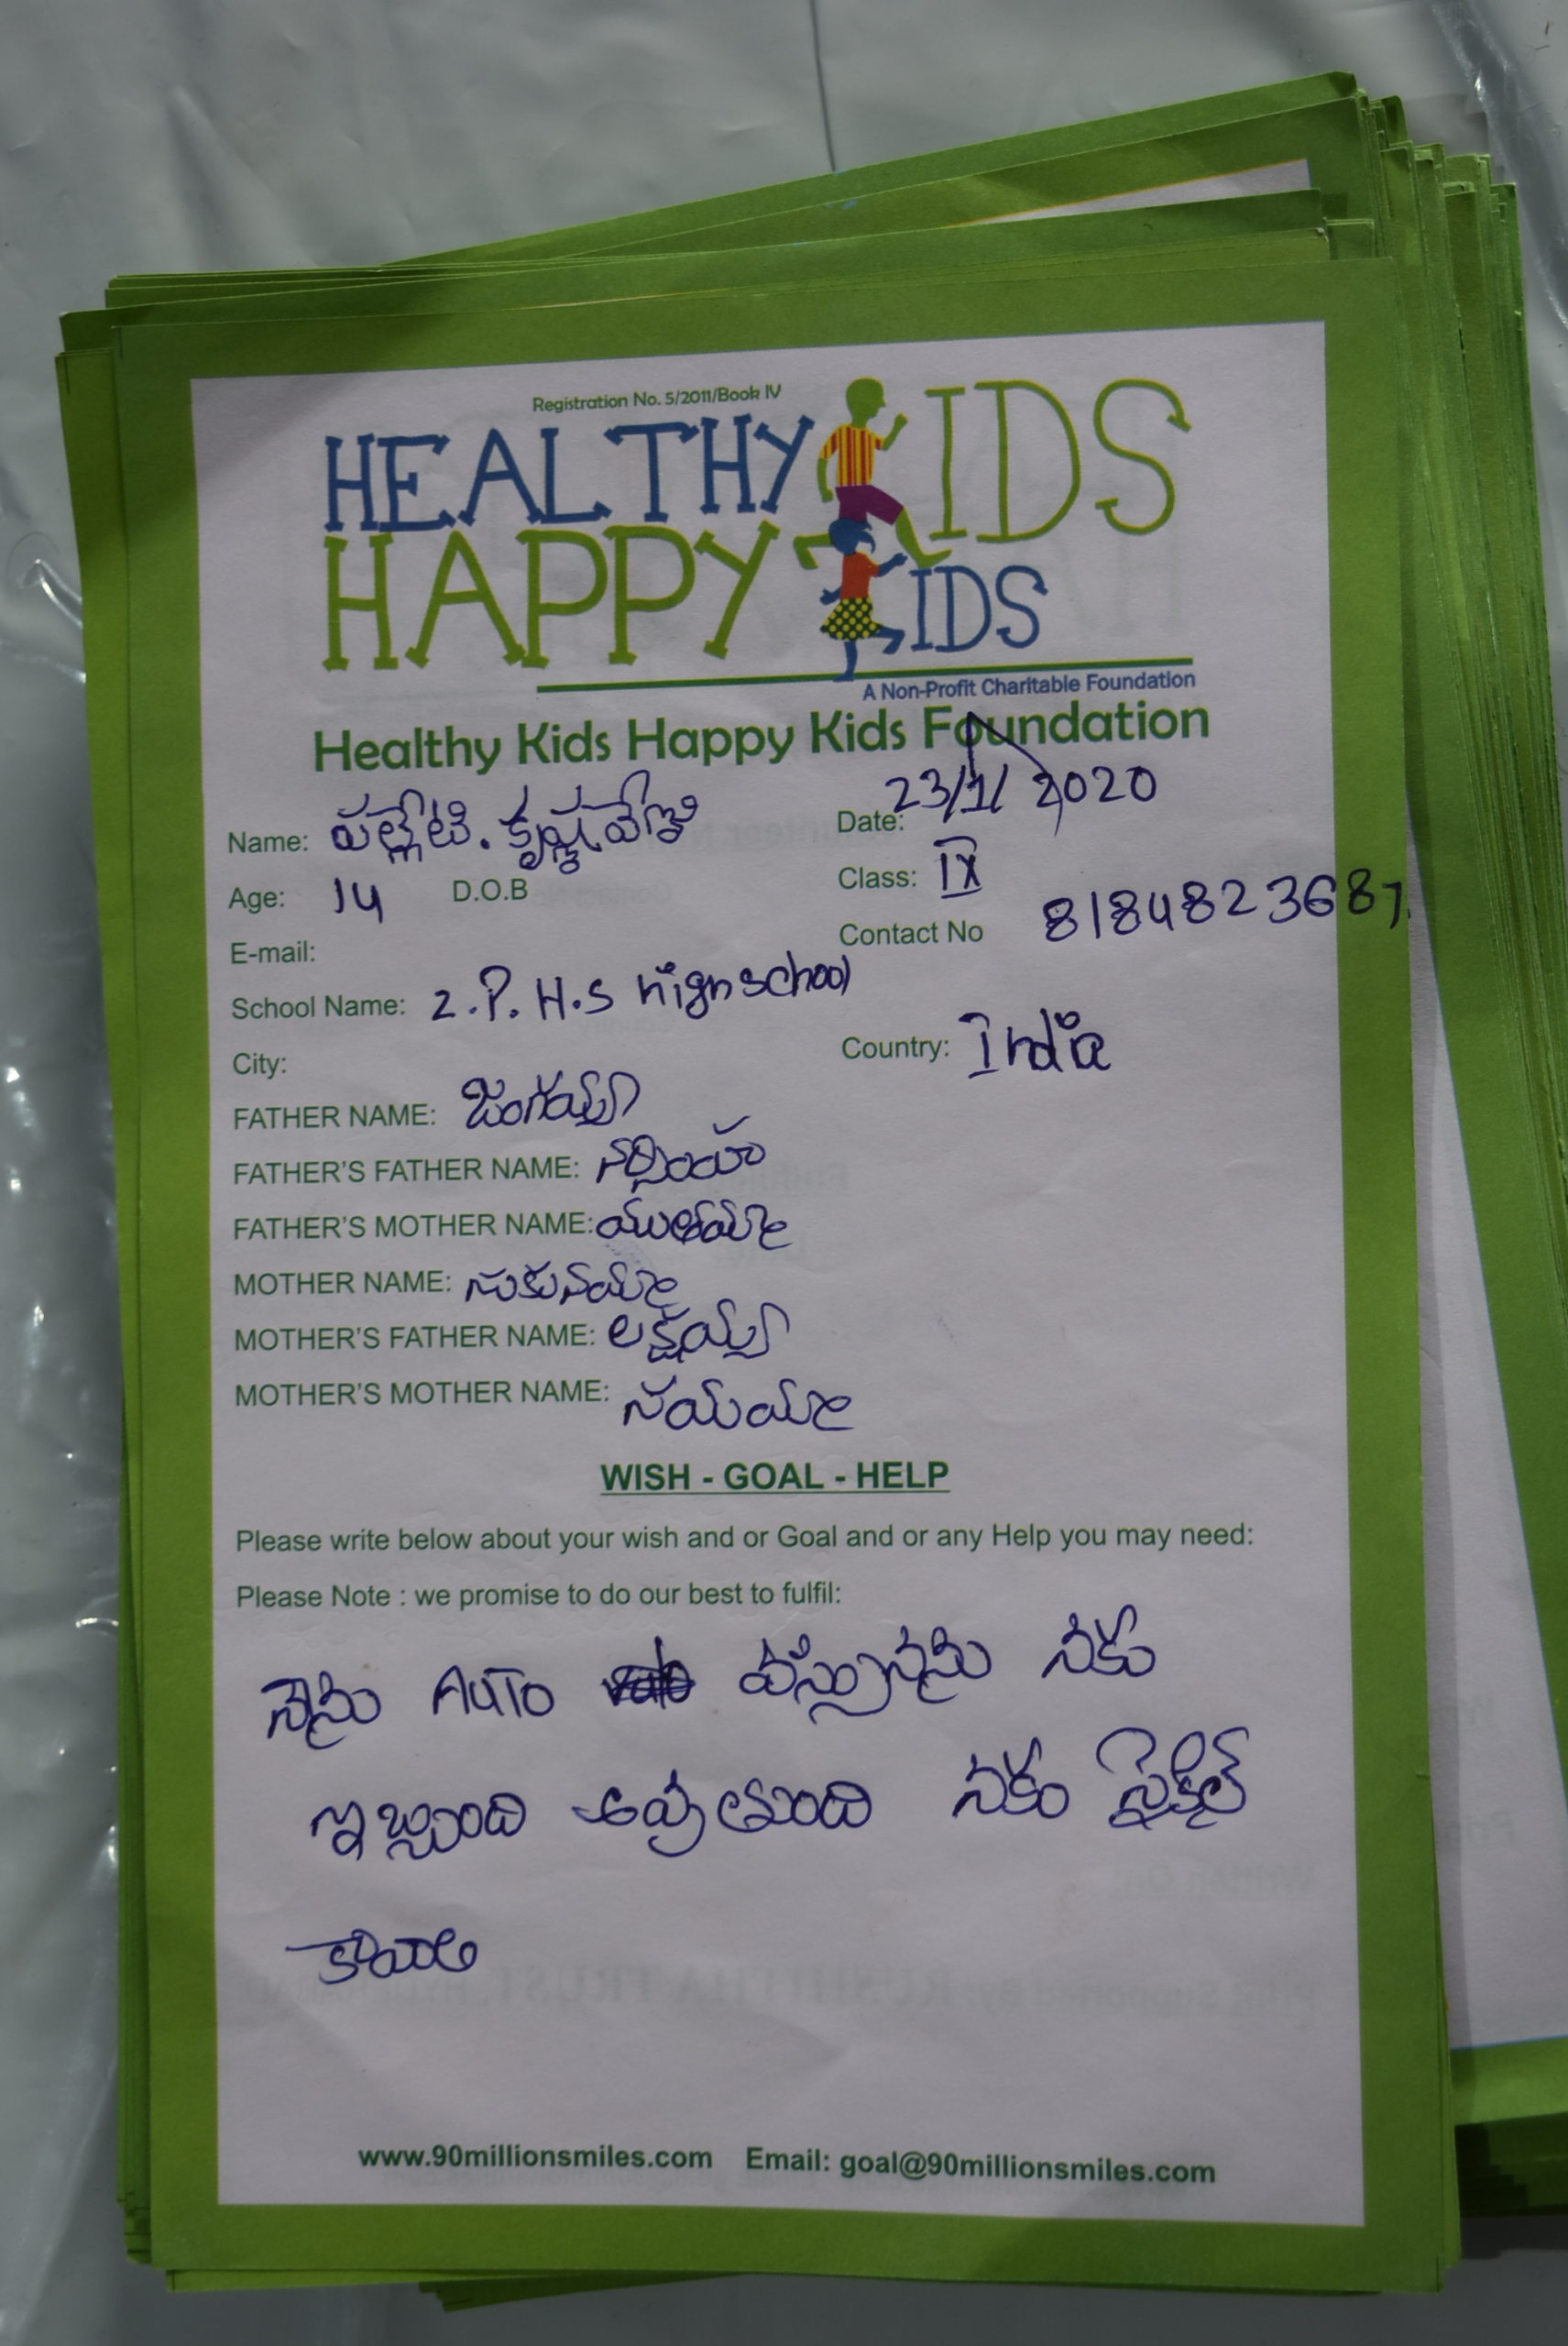 Registration No. 5/2011/Book IV
HEALTHY KIDS
HAPPY KIDS
A Non-Profit Charitable Foundation
Healthy Kids Happy Kids Foundation
Name: పల్లేటి. కృష్ణవేణి Date: 23/1/2020
Age: 14 D.O.B Class: IX
E-mail: Contact No 8184823687
School Name: Z.P.H.S High school
City: Country: India
FATHER NAME: జంగయ్య
FATHER'S FATHER NAME: నర్సింహ
FATHER'S MOTHER NAME:
MOTHER NAME:
MOTHER'S FATHER NAME: లక్ష్మయ్య
MOTHER'S MOTHER NAME:
WISH - GOAL - HELP
Please write below about your wish and or Goal and or any Help you may need:
Please Note : we promise to do our best to fulfil:
నేను AUTO నకు
అవుతుంది నకు సైకిల్
కావాలి
www.90millionsmiles.com Email: goal@90millionsmiles.com